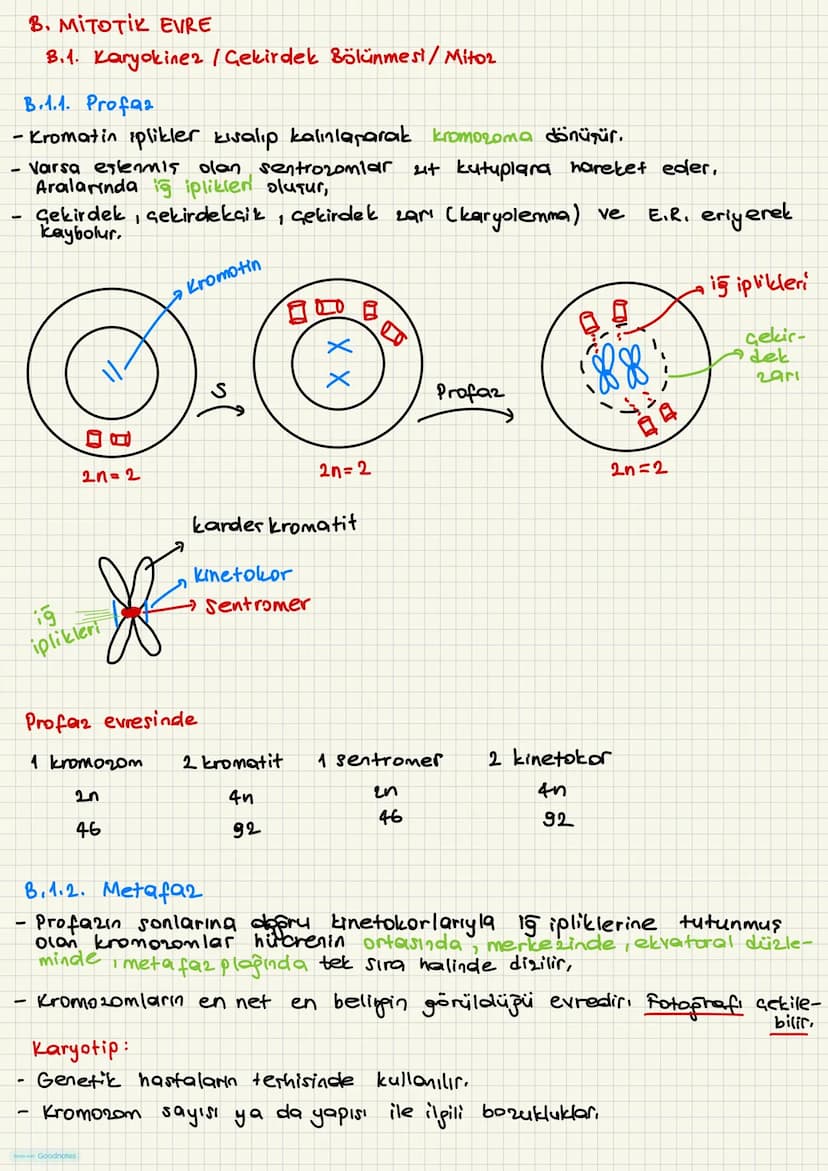 B. MİTOTİK EVRE
B.1. Karyokinez / Çekirdek Bölünmesi / Mitoz
B.1.1. Profaz
- Kromatin iplikler kısalıp kalınlaşarak kromozoma dönüşür.
- Varsa eşlenmiş olan sentrozomlar zıt kutuplara hareket eder.
Aralarında iğ iplikleri oluşur,
- Çekirdek, çekirdekçik, çekirdek zarı (karyolemma) ve E.R. eriyerek
kaybolur.
Kromotin
S
Profaz
iğ iplikleri
çekir-
dek
zarı
2n=2
2n=2
2n=2
karder kromatit
kinetokor
sentromer
iğ
iplikleri
Profaz evresinde
1 kromozom 2 kromatit 1 sentromer 2 kinetokor
2n 4n 2n 4n
46 92 46 92
B.1.2. Metafaz
- Profazın sonlarına doğru kinetokorlarıyla iğ ipliklerine tutunmuş
olan kromozomlar hücrenin ortasında, merkezinde, ekvatoral düzle-
minde, metafaz plağında tek sıra halinde dizilir,
- Kromozomların en net en belirgin görüldüğü evredir. Fotoğrafı çekile-
bilir.
Karyotip:
- Genetik hastaların terhisinde kullanılır.
- Kromozom sayısı ya da yapısı ile ilgili bozukluklar.
Goodnotes